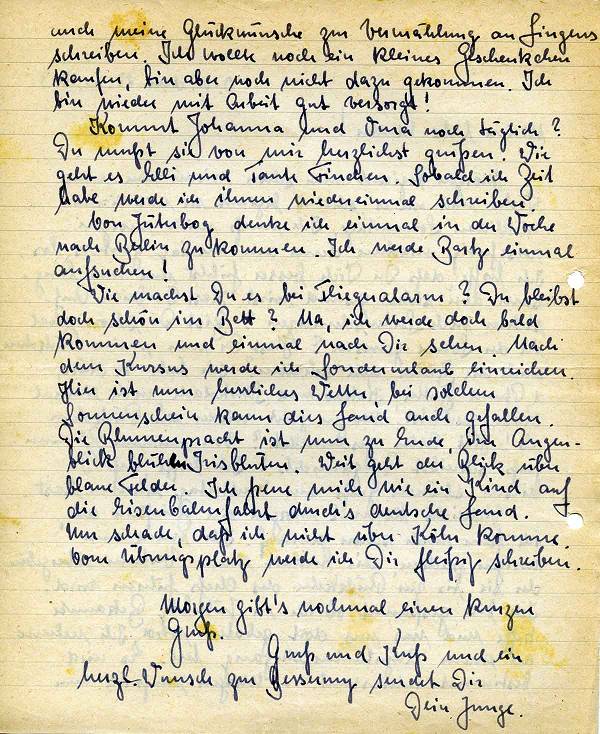 auch meine Glückwünsche zur Vermählung an Lingens
schreiben. Ich wollte noch ein kleines Geschenkchen
kaufen, bin aber noch nicht dazu gekommen. Ich
bin wieder mit Arbeit gut versorgt!
Kommt Johanna und noch täglich?
Du mußt sie von mir herzlichst grüßen. Wie
geht es Elli und Tante Finchen. Sobald ich Zeit
habe werde ich ihnen wiedereinmal schreiben
Von Jüterbog denke ich einmal in der Woche
nach Berlin zu kommen. Ich werde einmal
aufsuchen!
Wie machst Du es bei Fliegeralarm? Du bleibst
doch schön im Bett? Na, ich werde doch bald
kommen und einmal nach Dir sehen. Nach
dem Kursus werde ich Sonderurlaub einreichen.
Hier ist nun herrliches Wetter, bei solchem
Sonnenschein kann dies Land auch gefallen.
Die Blumenpracht ist nun zu Ende, im Augen-
blick blühen Irisblüten. Weit geht der Blick über
blaue Felder. Ich freue mich wie ein Kind auf
die Eisenbahnfahrt durch's deutsche Land.
Nur schade, daß ich nicht über Köln komme.
Vom Übungsplatz werde ich Dir fleißig schreiben.
Morgen gibt's nochmal einen kurzen
Gruß.
Gruß und Kuß und ein
herzl. Wunsch zur Besserung sendet Dir
Dein Junge.